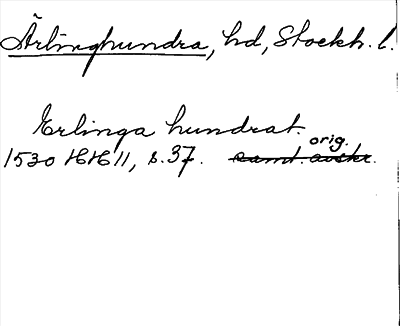 Ärlinghundra, hd, Stockh. l.
Erlinga hundrat.
orig.
1530 HH 11, s. 37. samt. avskr.